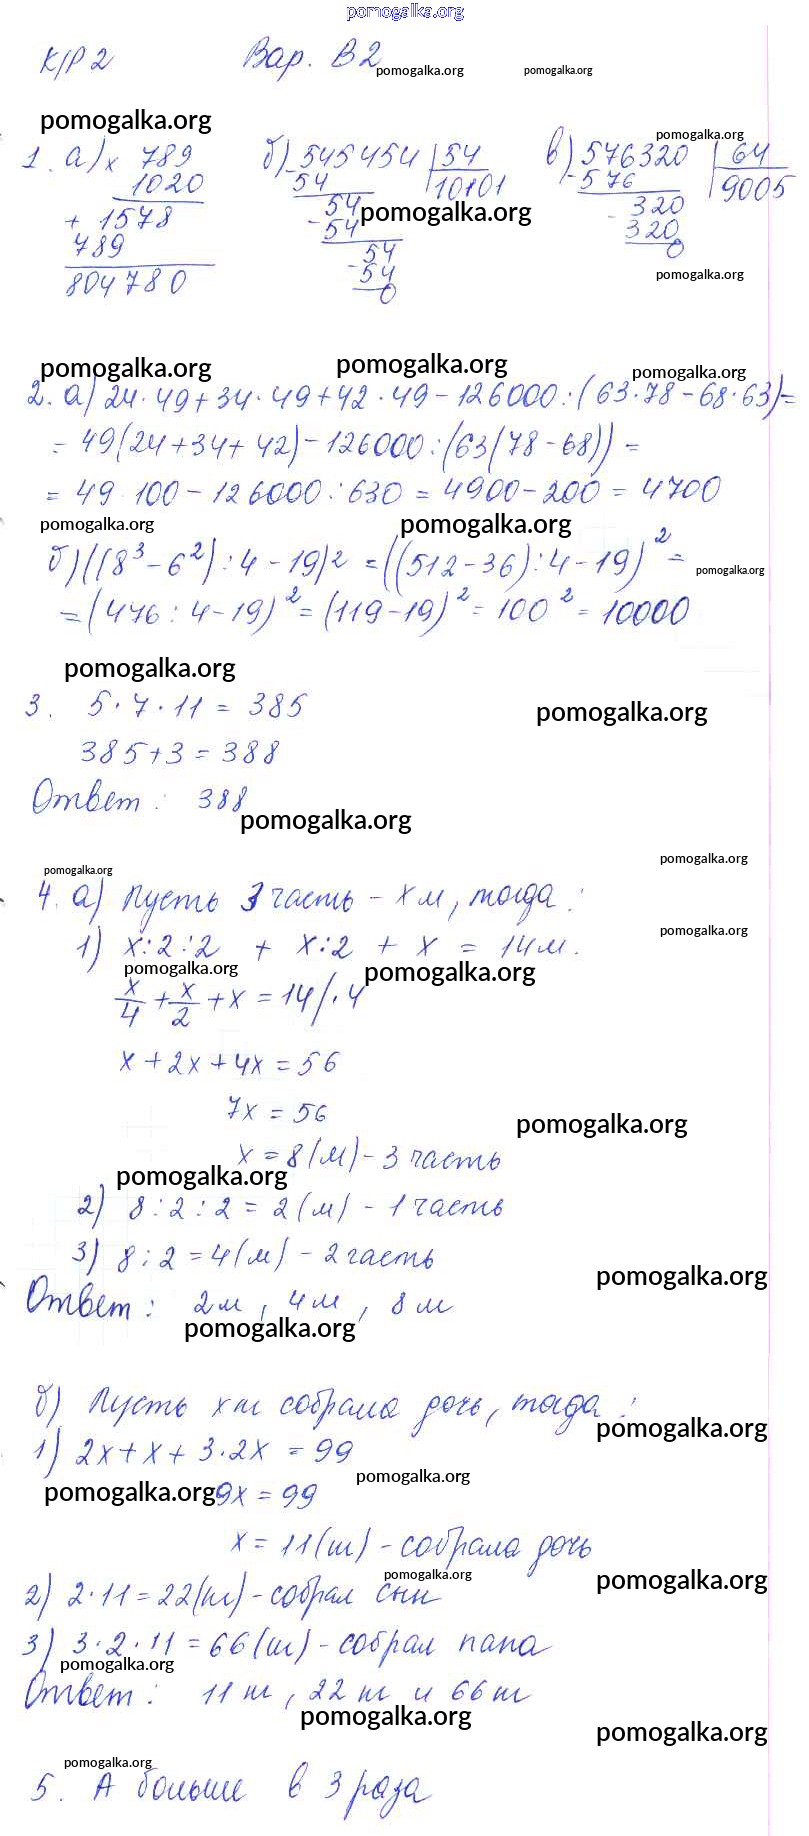 pomogalka.org
К/Р 2 Вар. В2
pomogalka.org pomogalka.org
pomogalka.org pomogalka.org
1. а) × 789 б) - 545454 | 54 в) - 576320 | 64
1020 54 10101 576 9005
+ 1578 54 320
789 - 54 pomogalka.org - 320
804780 54 0
- 54 pomogalka.org
0
pomogalka.org pomogalka.org pomogalka.org
2. а) 24·49+34·49+42·49-126000:(63·78-68·63)=
= 49(24+34+42)-126000:(63(78-68))=
= 49·100-126000:630=4900-200=4700
pomogalka.org pomogalka.org
б) ((8³-6²):4-19)2=((512-36):4-19)²=
pomogalka.org
=(476:4-19)²=(119-19)²=100²=10000
pomogalka.org
3. 5·7·11=385
pomogalka.org
385+3=388
Ответ: 388
pomogalka.org
pomogalka.org pomogalka.org
4. а) Пусть 3 часть - х м, тогда:
pomogalka.org
1) х:2:2 + х:2 + х = 14м.
pomogalka.org pomogalka.org
x/4 + x/2 + x = 14 /·4
х+2х+4х=56
7х=56
pomogalka.org
х=8(м)-3 часть
pomogalka.org
2) 8:2:2=2(м)-1 часть
3) 8:2=4(м)-2 часть
pomogalka.org
Ответ: 2м, 4м, 8м
pomogalka.org
б) Пусть х ш собрала дочь, тогда:
pomogalka.org
1) 2х+х+3·2х=99
pomogalka.org
pomogalka.org 9х=99
х=11(ш)-собрала дочь
pomogalka.org pomogalka.org
2) 2·11=22(ш)-собрал сын
3) 3·2·11=66(ш)-собрал папа
pomogalka.org
Ответ: 11ш, 22ш и 66ш
pomogalka.org pomogalka.org
pomogalka.org
5. А больше в 3 раза